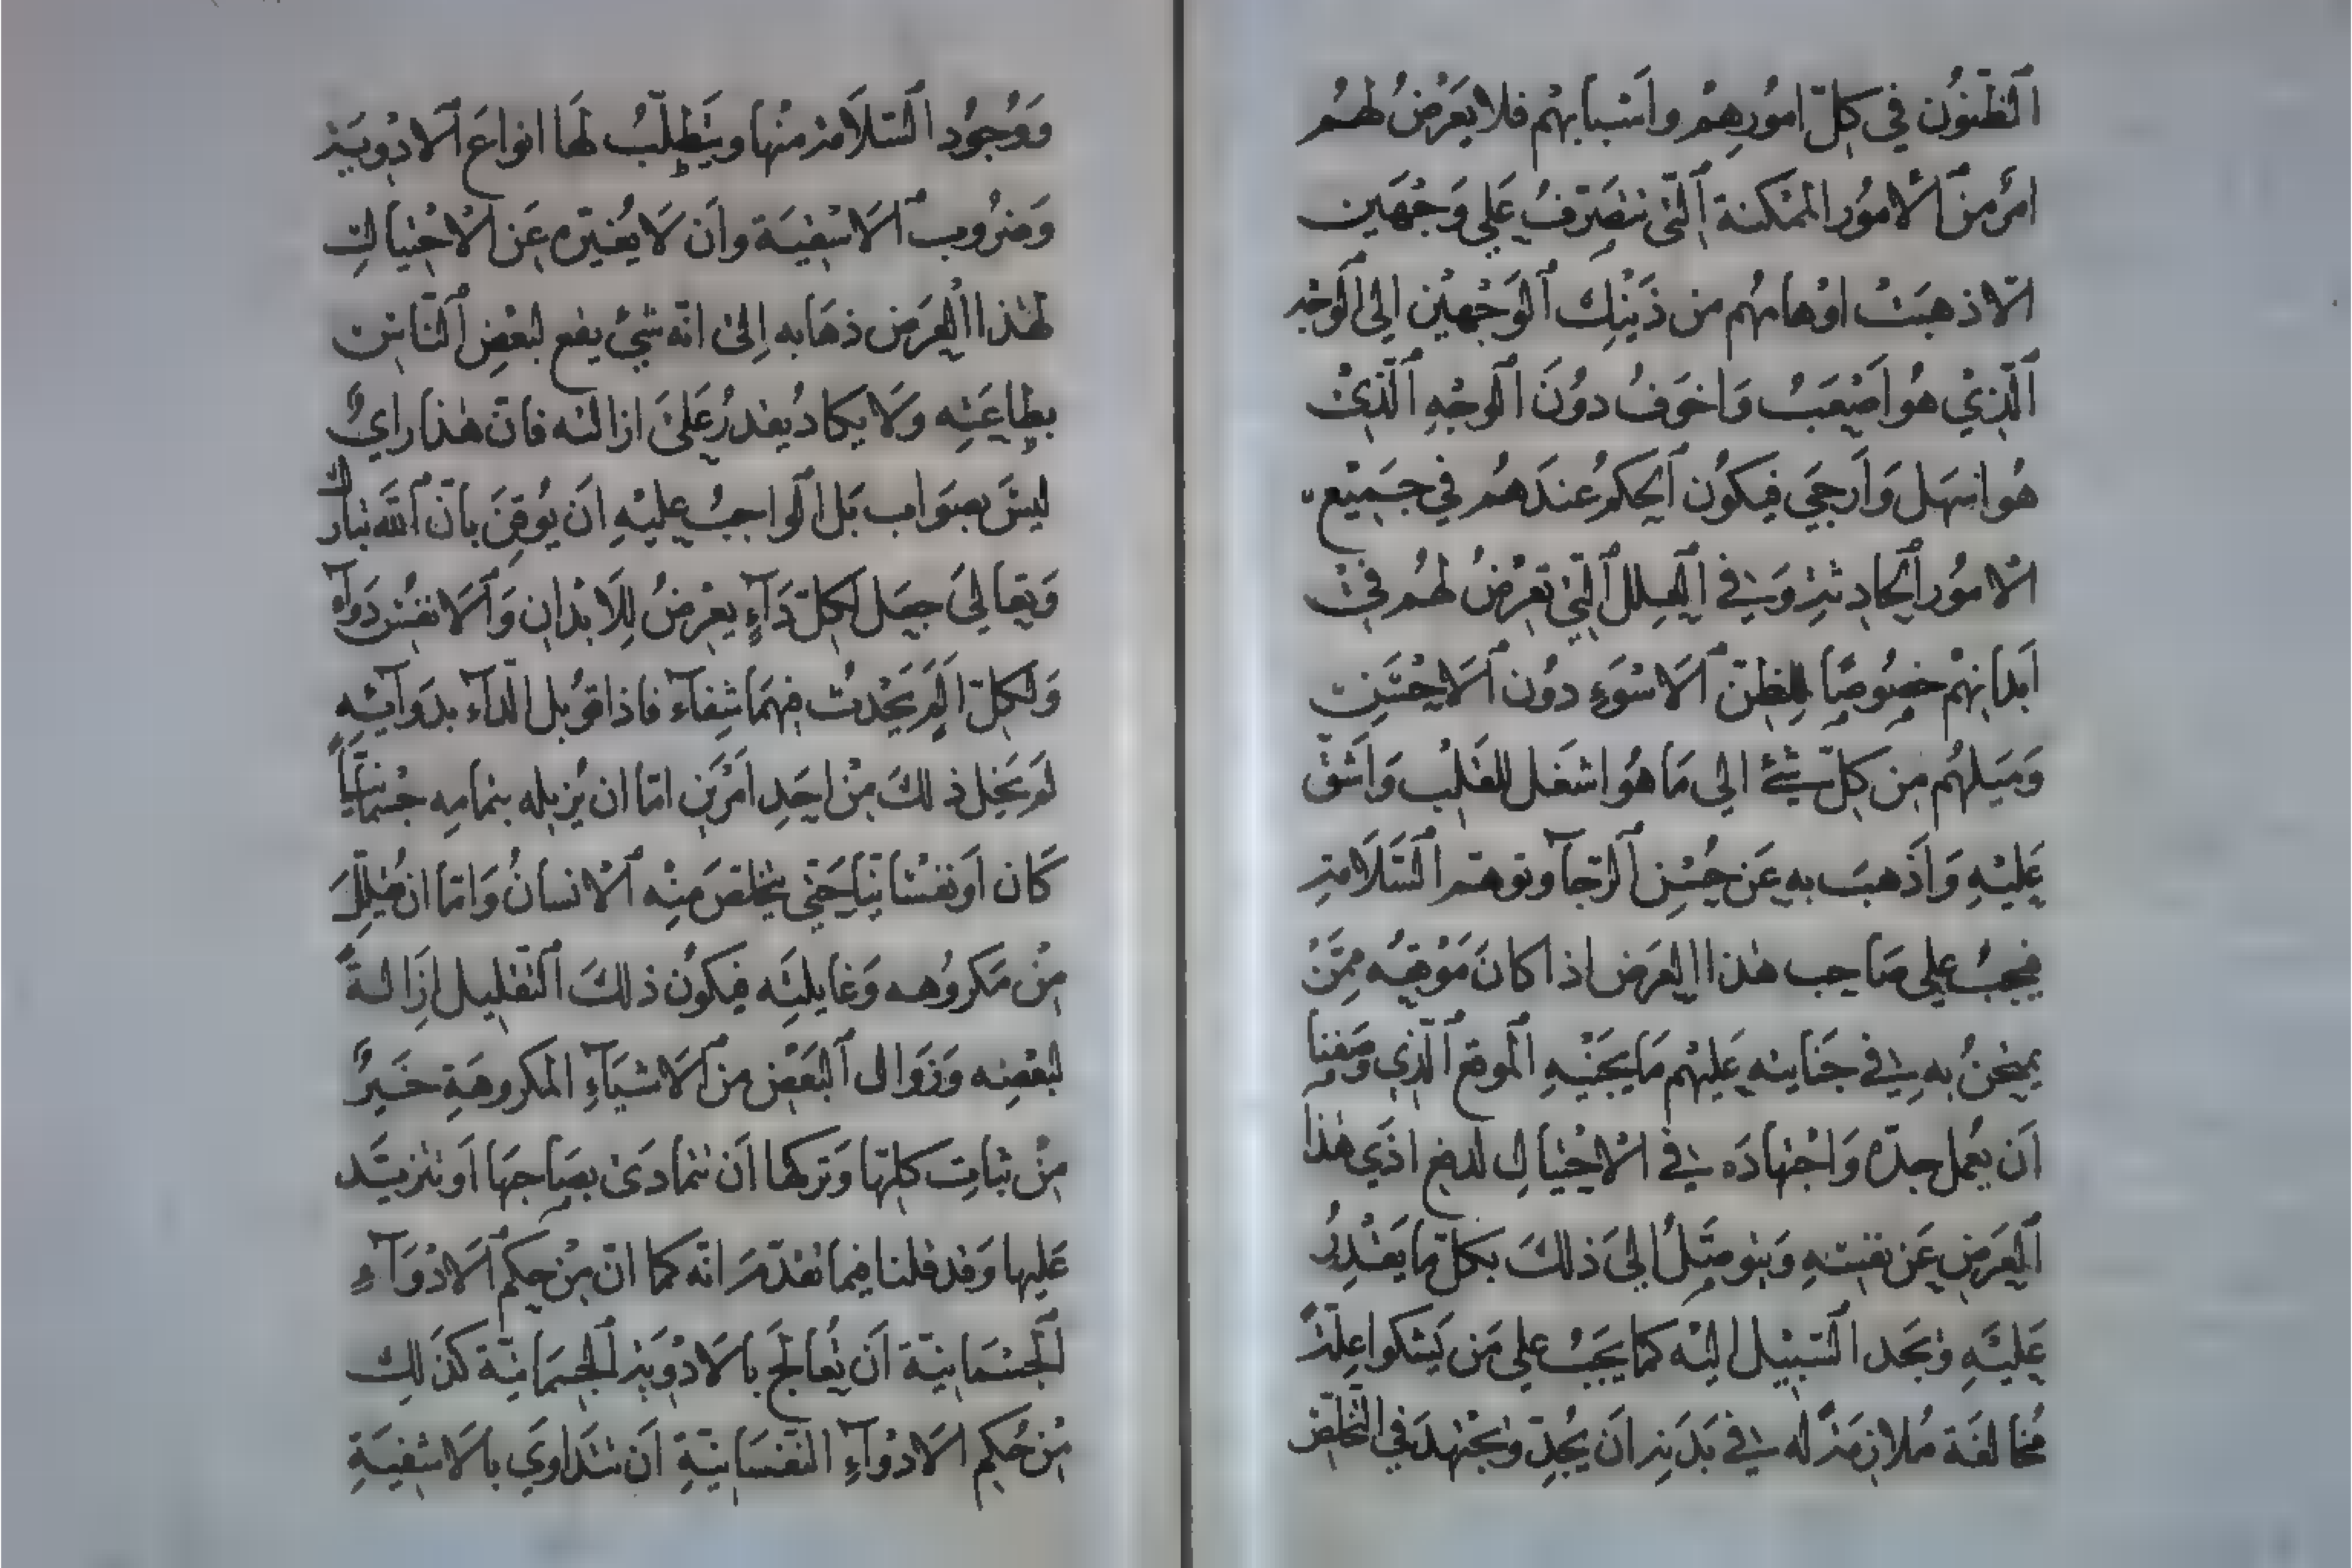 الظّنُون في كلّ امُورِهِمْ واَسْبابهْم فلا يَعَرْضُ لهُم
امْرٌ من الامُور الممْكنة الّتي تتصَرّفُ عَلى وَجْهَين
الّا ذهبَتْ اوْهامهُم من ذَيْنِك الوَجْهيْن الى الوَجْه
الّذِيْ هُو اصْعَبُ وَاخوَفُ دوُنَ الوجْهِ الّذيْ
هُو اسْهَل وَاَرجىَ فيكُون الحكمُ عندَهُم في جَميْع
الامُور الحادِثةِ وَفي العِلل الّتيْ تعْرْضُ لهُم فيْ
اَبدانِهمْ خصُوصًا للظنّ الاَسْوَءِ دوُن الاَحْسَنِ
وَمَيلهُم من كلّ شيْءٍ الى مَا هُوَ اشغَل للقَلْب وَاَشقّ
عَليْهِ وَاَذْهبَ به عَن حُسْنِ الرّجآ وتوهّم السّلَامة
فيجبُ على صَاحِب هٰذا العَرَض اذا كانَ مَوْقعُه ممّنْ
يمتحَنُ به في جَنايتهِ عَليْهم مَا يَجنْيهِ الموقع الّذي وَصَفنا
اَن يُعمل جدّه وَاجْتهادَه في الاحْتيالِ لدفع اذَي هٰذا
العَرَض عَن نفسهِ وَيتوصَّلُ الىَ ذلكَ بكلّ ما يَقْدِرُ
عَليْهِ وَيجَد السّبيْل اليْه كما يَجبُ على مَن يَشكوا عِلّةً
مُخالفَة مُلازمَةً له في بَدَنهِ اَن يُجدّ وَيجْتهدَ في التّخلّص
وَوُجوُد السّلاَمة منْها ويَتطلّبُ لهَا انواعَ الادْويَة
وَضرُوب الاَشْفيَة واَن لَا يُغيّره عَن الاحْتيالِ
لهٰذا العَرَض ذهَابه اِلى انّه شيْءٌ يقع لبَعْضِ النّاسِ
بطباعَتِه وَلَا يكادُ يقْدرُ عَلىَ ازالته فانّ هٰذا رايٌ
ليْسَ بصَوَاب بَل الوَاجبُ عليْهِ اَن يُوقنَ بانّ اللّٰه تبارك
وَتعالىَ جعَل لكلّ دَآءٍ يعْرضُ للِاَبْدانِ وَالاَنفسْ دَوآءً
وَلكلّ اَلَمٍ يَحْدثُ فيهمَا شِفآء فاذا قوُبل الدّآء بدَوآئهِ
لَمْ يَخل ذلكَ مِنْ احَدِ اَمْرَيْن امّا ان يُزيله بتمامِه جسْمانيًّا
كَان اَو نفسْانيّا حَتّى يتخَلّصَ مِنْه الانسانُ وَامّا ان يُقلّلَ
مِنْ مَكروُهه وَغايلتَه فيكونُ ذلكَ التّقْليل ازَالةً
لبَعْضِه وَزَوَال البَعْض من الاَشيَآءِ المَكروهَةِ خَيرٌ
مِنْ ثباتِ كلّها وَتركها اَن تتمادَىْ بصَاحبهَا اَو تتزيّد
عَليها وَقد قلنا فيما تقدّمَ انّه كما انّ مِنْ حِكمِ الاَدْوَآءِ
الجسْمَانيّة اَن تُعالجَ بالاَدْوِيَة الجسمانيّة كذَلك
مِنْ حُكم الاَدْوَآءِ النّفسَانيّةِ اَن تتداوَي بالاَشْفيَةِ